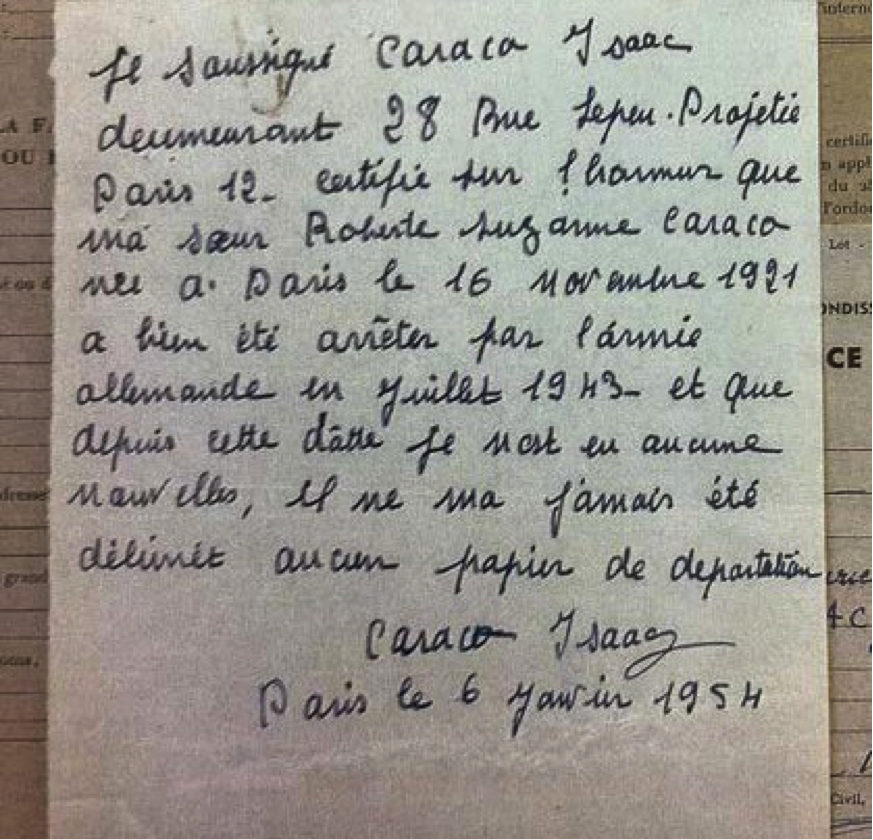 Je Soussigné Caraco Isaac
deumeurant 28 Rue Lepeu. Projetée
Paris 12_ certifie sur l'honneur que
ma sœur Roberte Suzanne Caraco
née a. Paris le 16 Novembre 1921
a bien été arrêter par l'armée
allemande en Juillet 1943_ et que
depuis cette dâtte Je nost eu aucune
nouvelles, Il ne ma jamais été
délivrét aucun papier de deportation
Caraco Isaac
Paris le 6 Janvier 1954
interne
LA F
OU
certifi
appl
du
l'ordo
Lot -
ONDISS
CE
adresse
grand
AC
Civil,